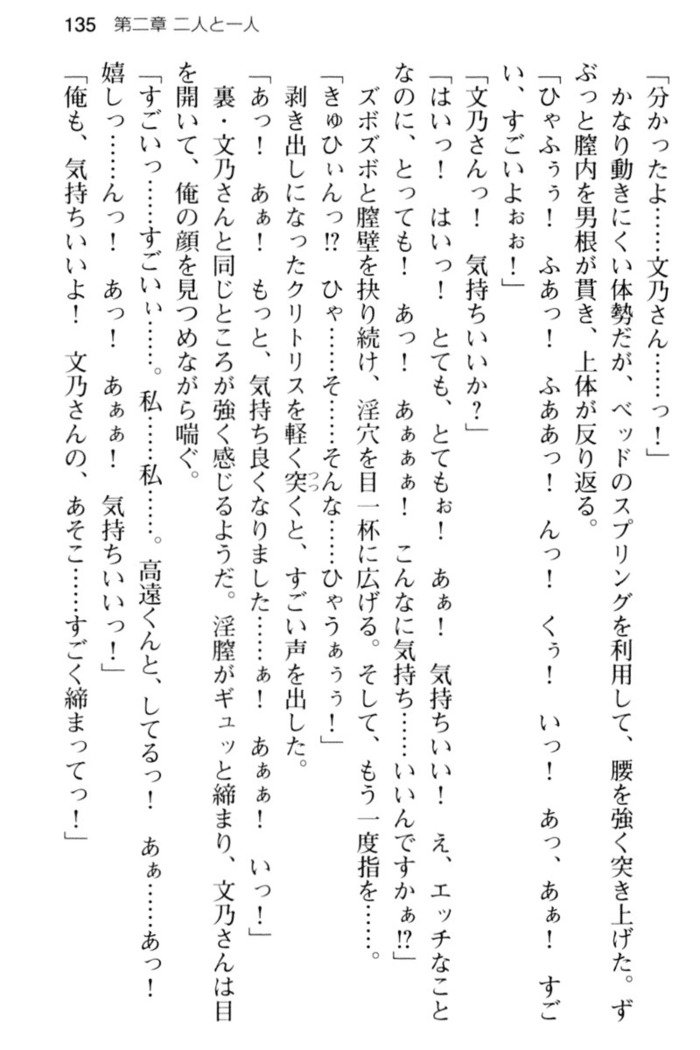 135 第二章 二人と一人
「分かったよ……文乃さん……っ！」
かなり動きにくい体勢だが、ベッドのスプリングを利用して、腰を強く突き上げた。ず
ぶっと膣内を男根が貫き、上体が反り返る。
「ひゃふぅぅ！　ふあっ！　ふああっ！　んっ！　くぅ！　いっ！　あっ、あぁ！　すご
い、すごいよぉぉ！」
「文乃さんっ！　気持ちいいか？」
「はいっ！　はいっ！　とても、とてもぉ！　あぁ！　気持ちいい！　え、エッチなこと
なのに、とっても！　あっ！　あぁぁぁ！　こんなに気持ち……いいんですかぁ!?」
ズボズボと膣壁を抉り続け、淫穴を目一杯に広げる。そして、もう一度指を……。
「きゅひぃんっ!?　ひゃ……そ……そんな……ひゃうぁぅぅ！」
剥き出しになったクリトリスを軽く突つつくと、すごい声を出した。
「あっ！　あぁ！　もっと、気持ち良くなりました……ぁ！　あぁぁ！　いっ！」
裏・文乃さんと同じところが強く感じるようだ。淫膣がギュッと締まり、文乃さんは目
を開いて、俺の顔を見つめながら喘ぐ。
「すごいっ……すごいぃ……。私……私……。高遠くんと、してるっ！　あぁ……あっ！
嬉しっ……んっ！　あっ！　あぁぁ！　気持ちいいっ！」
「俺も、気持ちいいよ！　文乃さんの、あそこ……すごく締まってっ！」